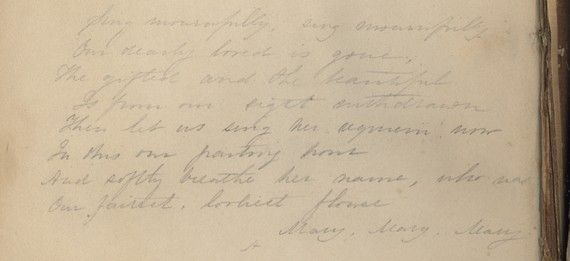 Sing mournfully, sing mournfully
Our dearly loved is gone,
The gifted and the beautiful
Is from our sight withdrawn
Then let us sing her requiem now
In this our parting hour
And softly breathe her name, who was
Our fairest, loveliest flower
Mary, Mary, Mary